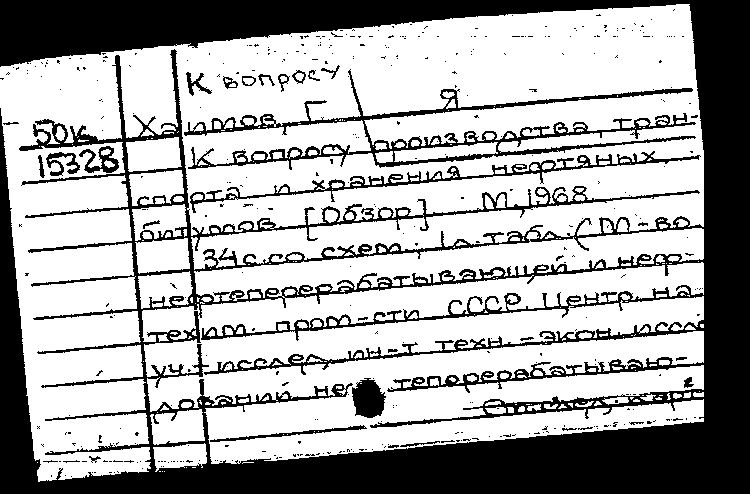 К вопросу
50к Хаимов, Г Я
15328 К вопросу производства, тран-
спорта и хранения нефтяных
битумов [Обзор] М., 1968
34 с. со схем.; 1 л. табл. (М-во
нефтеперерабатывающей и неф-
техим. пром-сти СССР. Центр. на
уч.-исслед, ин-т техн.-экон. иссле
дований не теперерабатываю-
См. след. карт